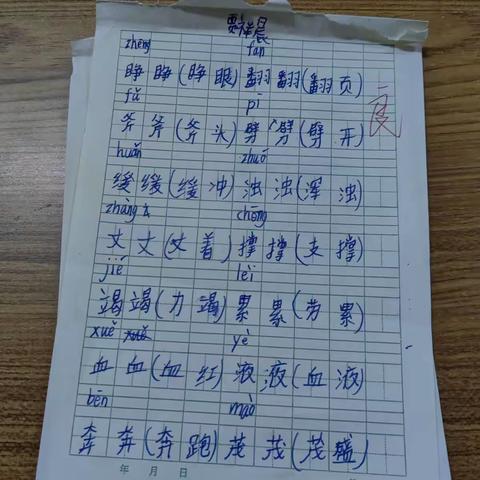 zhēng fān
睁 睁(睁眼)翻翻(翻页)
良
fǔ pī
斧 斧(斧头)劈劈(劈开)
huǎn zhuó
缓缓(缓冲)浊浊(浑浊)
zhàng chēng
丈丈(丈着)撑撑(支撑)
jié lèi
竭竭(力竭)累累(劳累)
xuě yè
血血(血红)液液(血液)
bēn mào
奔奔(奔跑)茂茂(茂盛)
年 月 日